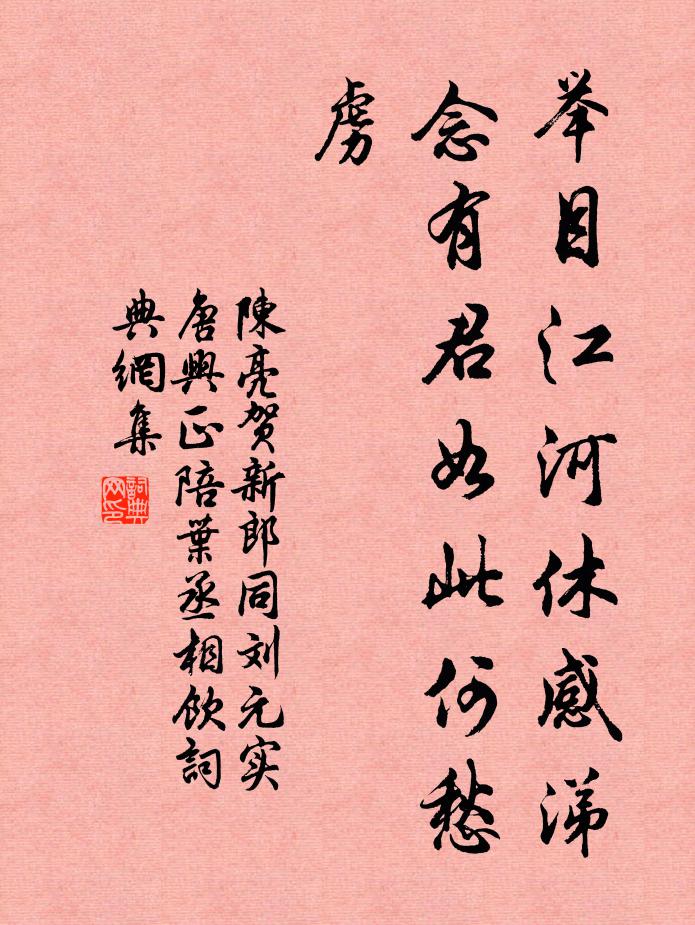 举目江河休感涕
念有君如此何愁
虏
陳亮贺新郎同刘元实
唐興正陪葉丞相飲詞
典網集
詞典网印